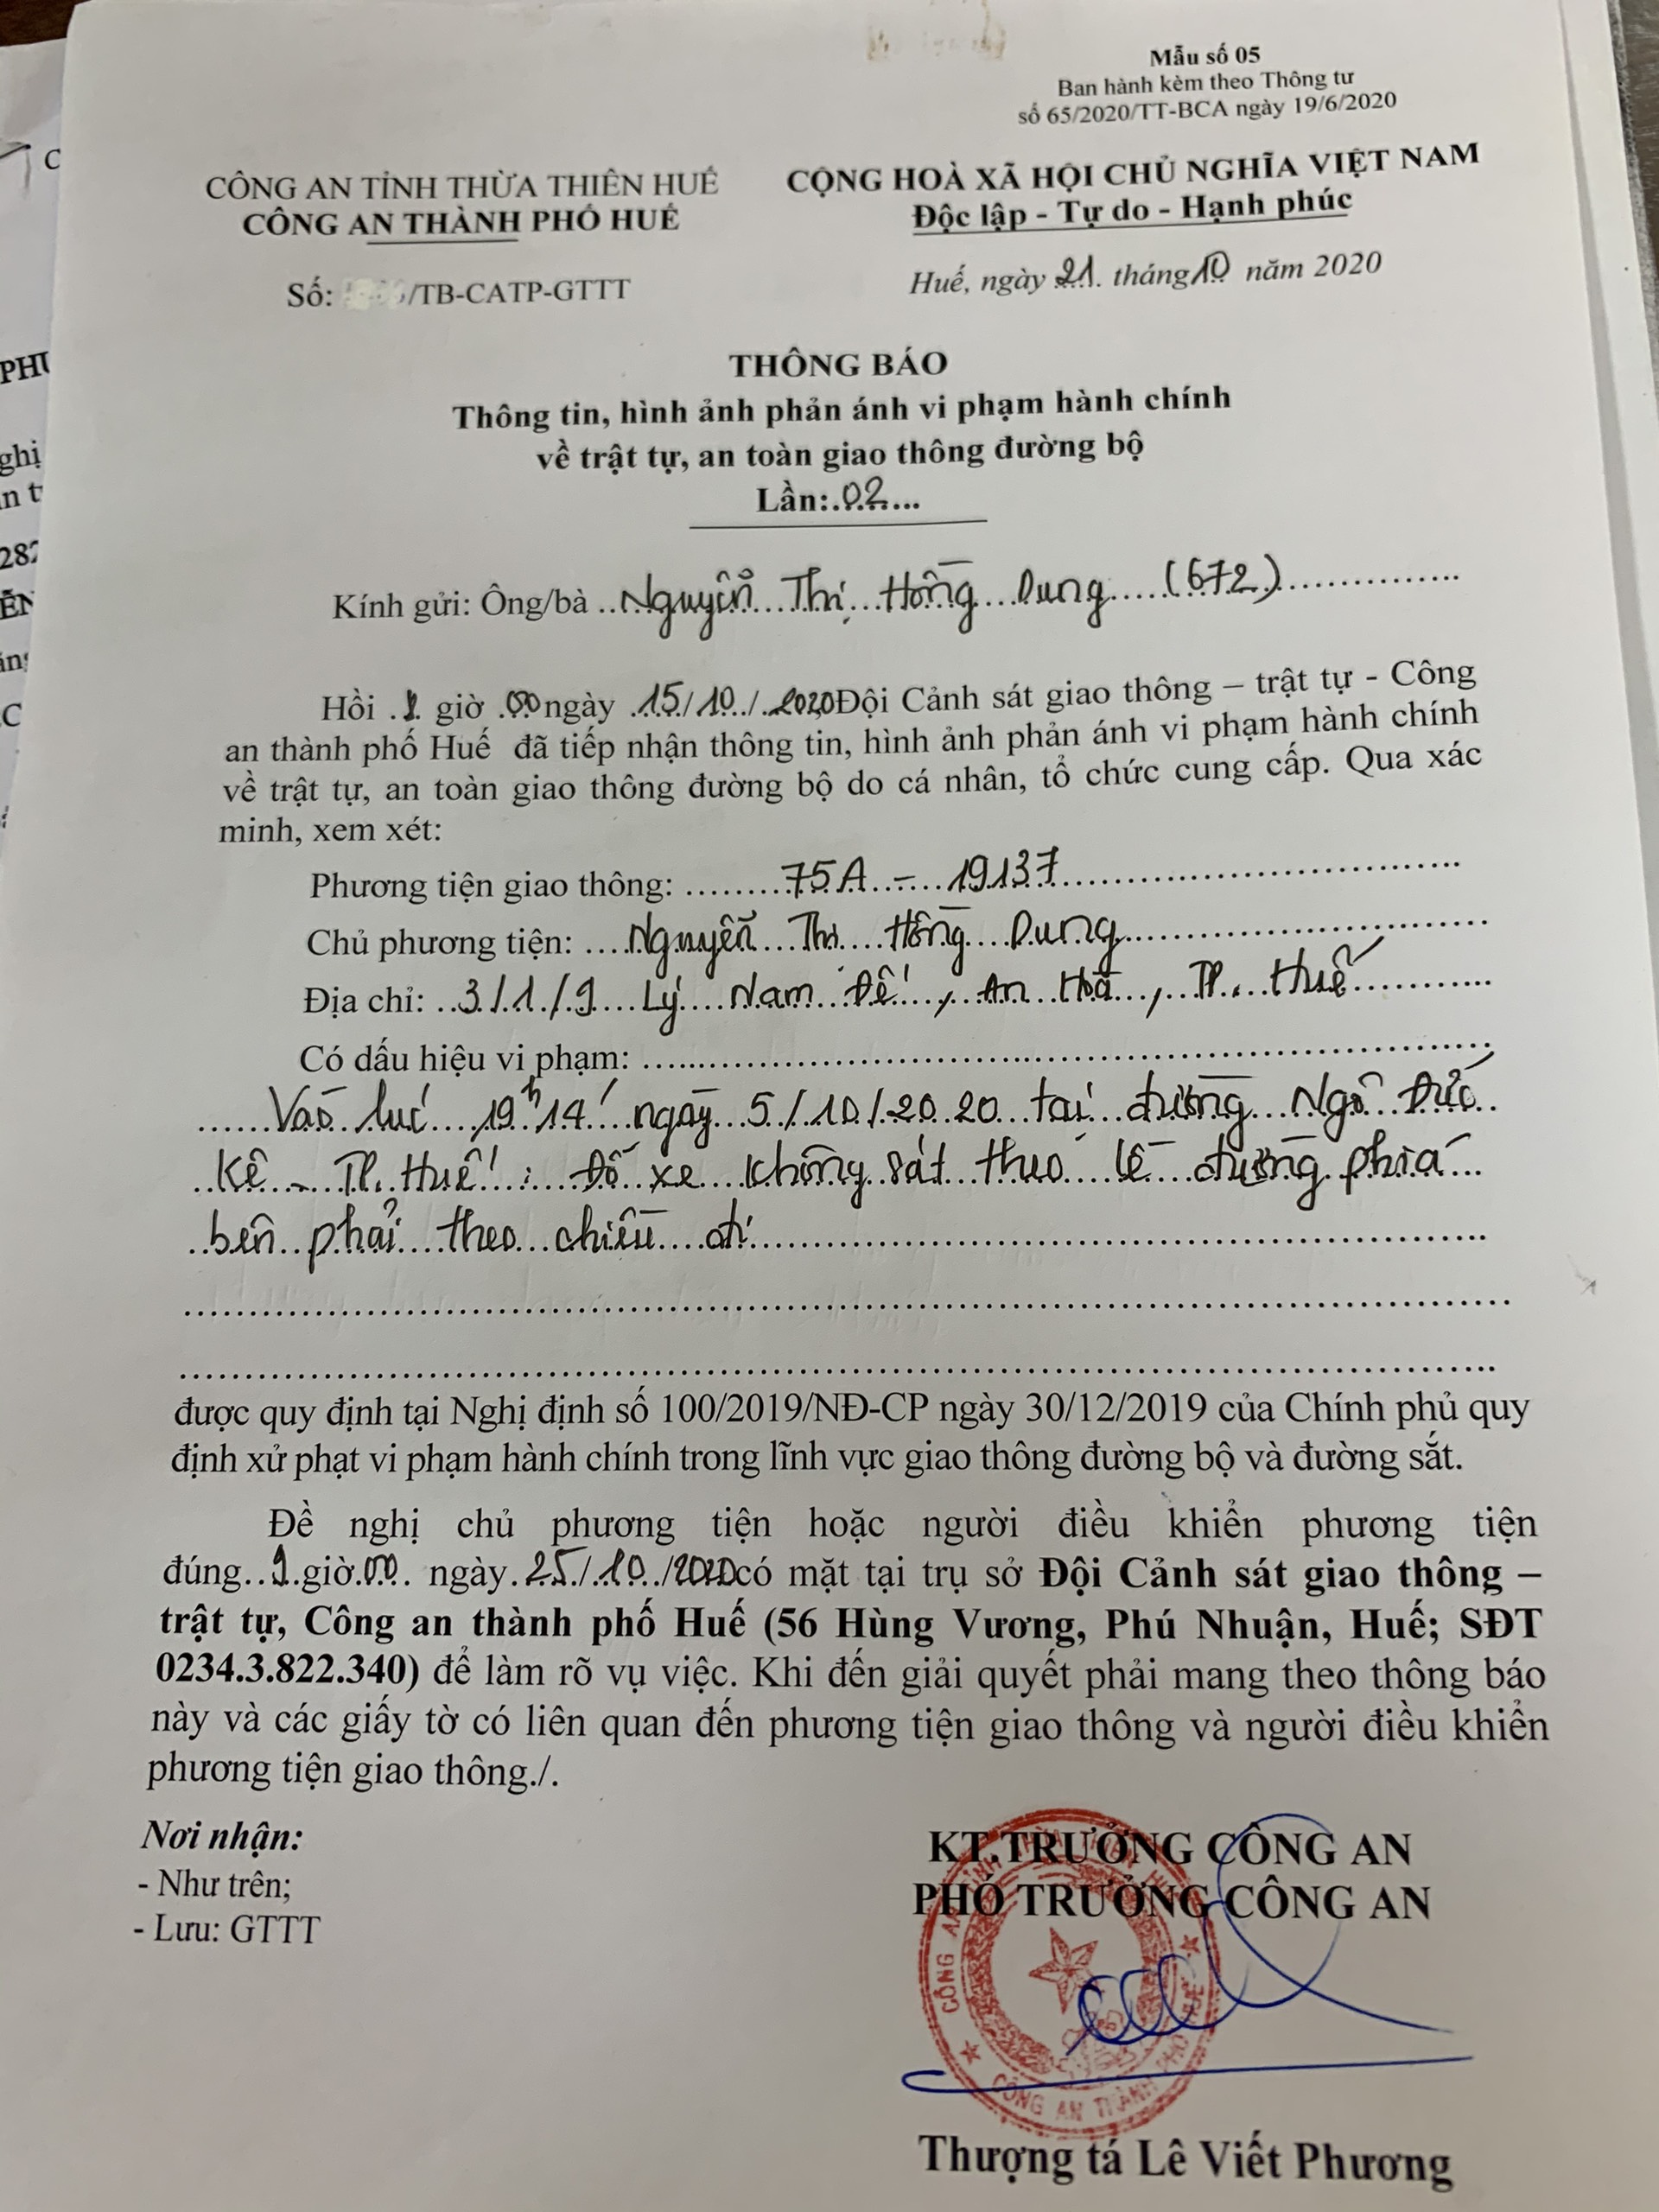 Mẫu số 05
Ban hành kèm theo Thông tư
số 65/2020/TT-BCA ngày 19/6/2020
CÔNG AN TỈNH THỪA THIÊN HUẾ
CÔNG AN THÀNH PHỐ HUẾ
CỘNG HOÀ XÃ HỘI CHỦ NGHĨA VIỆT NAM
Độc lập - Tự do - Hạnh phúc
Số: /TB-CATP-GTTT
Huế, ngày 21 tháng 10 năm 2020
THÔNG BÁO
Thông tin, hình ảnh phản ánh vi phạm hành chính
về trật tự, an toàn giao thông đường bộ
Lần: 02
Kính gửi: Ông/bà Nguyễn Thị Hồng Dung (672)
Hồi giờ 00 ngày 15/10/2020 Đội Cảnh sát giao thông – trật tự - Công
an thành phố Huế đã tiếp nhận thông tin, hình ảnh phản ánh vi phạm hành chính
về trật tự, an toàn giao thông đường bộ do cá nhân, tổ chức cung cấp. Qua xác
minh, xem xét:
Phương tiện giao thông: 75A - 19137
Chủ phương tiện: Nguyễn Thị Hồng Dung
Địa chỉ: 3/1/9 Lý Nam Đế, An Hoà, TP. Huế
Có dấu hiệu vi phạm:
Vào lúc 19h14' ngày 5/10/2020 tại đường Ngô Đức
Kế - TP. Huế: Đỗ xe không sát theo lề đường phía
bên phải theo chiều đi
được quy định tại Nghị định số 100/2019/NĐ-CP ngày 30/12/2019 của Chính phủ quy
định xử phạt vi phạm hành chính trong lĩnh vực giao thông đường bộ và đường sắt.
Đề nghị chủ phương tiện hoặc người điều khiển phương tiện
đúng 9 giờ 00 ngày 25/10/2020 có mặt tại trụ sở Đội Cảnh sát giao thông –
trật tự, Công an thành phố Huế (56 Hùng Vương, Phú Nhuận, Huế; SĐT
0234.3.822.340) để làm rõ vụ việc. Khi đến giải quyết phải mang theo thông báo
này và các giấy tờ có liên quan đến phương tiện giao thông và người điều khiển
phương tiện giao thông./.
Nơi nhận:
- Như trên;
- Lưu: GTTT
KT.TRƯỞNG CÔNG AN
PHÓ TRƯỞNG CÔNG AN
CÔNG AN THÀNH PHỐ HUẾ
Thượng tá Lê Viết Phương